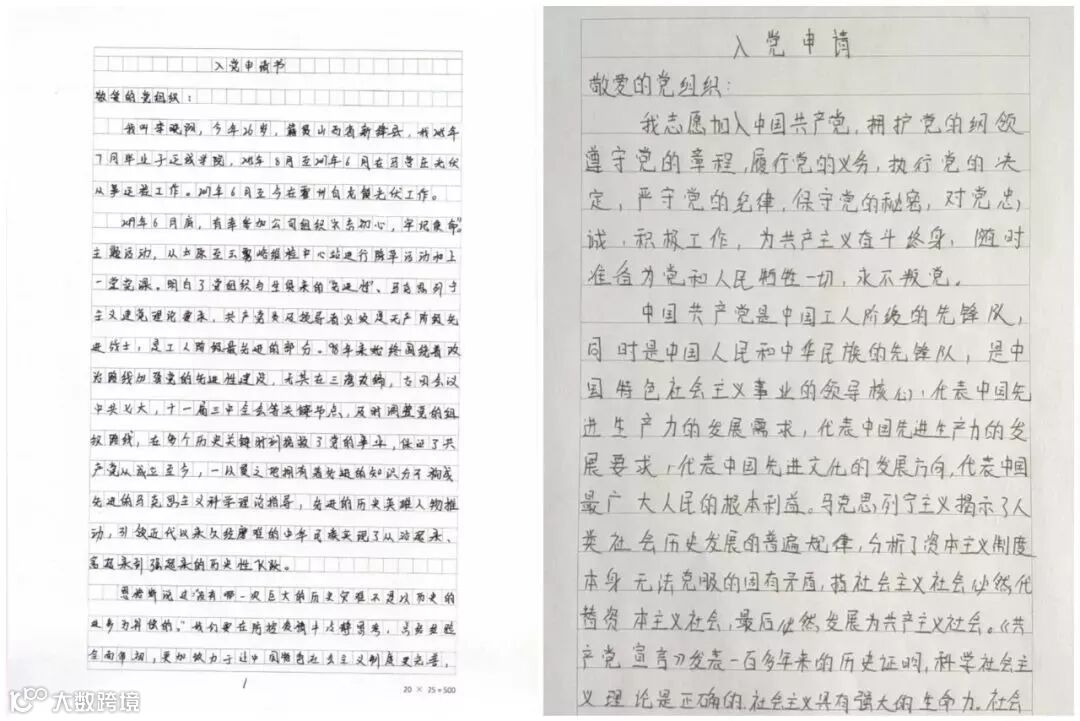 入党申请书
敬爱的党组织：
我叫李晓阳，今年26岁，籍贯山西省新绛县，我
7月毕业于运城学院，
从事运维工作。 6月至今在霍州白龙镇光伏工作。
6月底，有幸参加公司组织不忘初心，牢记使命"
主题活动，从太原至五 检中心站进行 活动和上
一堂党课。明白了党组织与生俱来的先进性。马克思列宁
主义建党理论要求，共产党员及领导者必须是无产阶级先
进战士，是工人阶级最先进的部分。98年来始终围绕着政
治路线加强党的先进性建设，尤其在三湾改编，古田会议
中共七大，十一届三中全会等关键节点，及时调整党的组
织路线，在每个历史关键时刻挽救了党的事业，保证了共
产党从成立至今，一以贯之地拥有着先进的知识分子构成
先进的马克思主义科学理论指导，先进的历史英雄人物推
动，引领近代以来久经磨难的中华民族实现了从站起来、
富起来到强起来的历史性飞跃。
恩格斯说过"没有哪一次巨大的历史灾难不是以历史的
进步为补偿的。"我们要在防控疫情斗 冷静思考，
全面审视，更加致力于让中国特色社会主义制度更完善，
1
20 × 25=500
入党申请
敬爱的党组织：
我志愿加入中国共产党，拥护党的纲领
遵守党的章程，履行党的义务，执行党的决
定，严守党的纪律，保守党的秘密，对党忠
诚，积极工作，为共产主义奋斗终身，随时
准备为党和人民牺牲一切，永不叛党。
中国共产党是中国工人阶级的先锋队，
同时是中国人民和中华民族的先锋队，是中
国特色社会主义事业的领导核心，代表中国先
进生产力的发展需求，代表中国先进生产力的发
展要求，代表中国先进文化的发展方向，代表中国
最广大人民的根本利益。马克思列宁主义揭示了人
类社会历史发展的普遍规律，分析了资本主义制度
本身无法克服的固有矛盾，指社会主义社会必然代
替资本主义社会，最后必然发展为共产主义社会。《共
产党宣言》发表一百多年来的历史证明，科学社会主
义理论是正确的，社会主义具有强大的生命力。社会
大数跨境